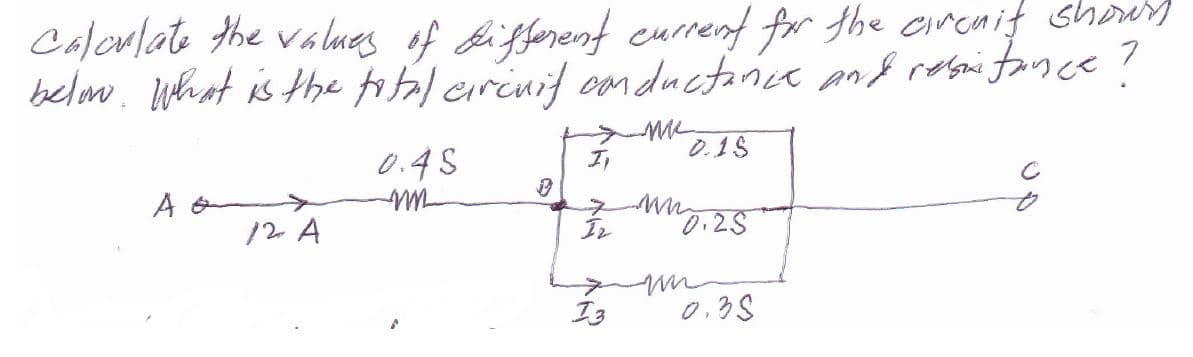 Calculate the values of different current for the circuit shown
below. What is the total circuit conductance and resistance?
0.1S
I1
0.4S
C
B
A
0.2S
12 A
I2
I3
0.3S